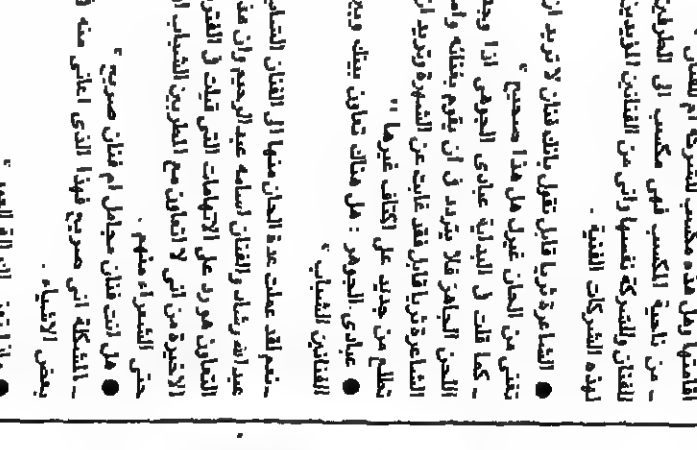 اقامتها وهل هذه مكسب للشركة ام للفنان ؟
ـ من ناحية المكسب فهي مكسب الى الطرفين
للفنان وللشركة نفسها واني من الفنانين المؤيدين
لهذه الشركات الفنية .
● الشاعرة ثريا قابل تقول بانك فنان لا تريد ان
تغني من الحان غيرك هل هذا صحيح ؟
ـ كما قلت في البداية عبادي الجوهر اذا وجد
اللحن الجاهز فلا يتردد في ان يقوم بغنائه
الشاعرة ثريا قابل فقد غابت عن الشهرة وتريد ان
تطلع من جديد على اكتاف غيرها !!
● عبادي الجوهر : هل هناك تعاون بينك وبين
الفنانين الشباب ؟
ـ نعم لقد عملت عدة الحان منها الى الفنان
عبدالله رشاد والفنان اسامه عبدالرحيم وان
التعاون هو رد على الاتهامات التي قيلت في
الاخيرة من اني لا اتعاون مع المطربين الشباب
حتى الشعراء منهم .
● هل انت فنان مجامل ام فنان صريح ؟
ـ المشكلة اني صريح فهذا الذي اعاني منه
بعض الاشياء .